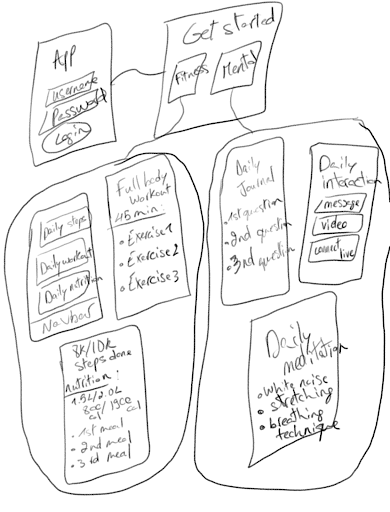 App
username
Password
Login
Get started
Fitness
Mental
Daily steps
Daily workout
Daily nutrition
Navbar
Full body
workout
45 min:
• Exercise 1
• Exercise 2
• Exercise 3
8K/10K
steps done
nutrition:
1.5L/2.0L
800/1900
cal cal
• 1st meal
• 2nd meal
• 3rd meal
Daily
Journal
• 1st question
• 2nd question
• 3rd question
Daily
interaction
message
video
connect
live
Daily
meditation
• white noise
• stretching
• breathing
technique